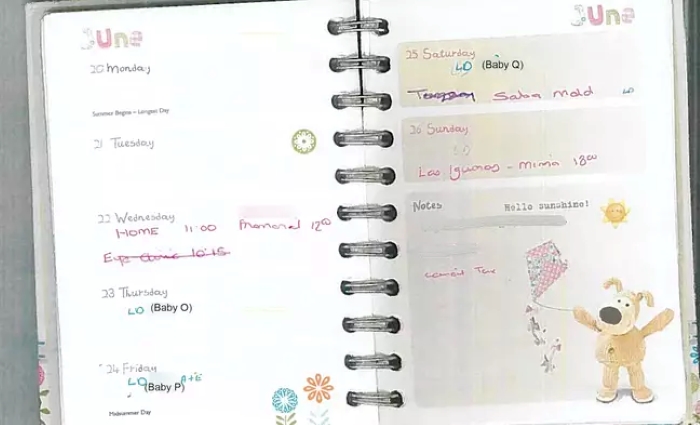 June
20 Monday
Summer Begins – Longest Day
21 Tuesday
22 Wednesday
HOME 11:00 Memorial 12⁰⁰
Eye Clinic 10:15
23 Thursday
LD (Baby O)
24 Friday
LD A+E
(Baby P)
Midsummer Day
June
25 Saturday
LD (Baby Q)
Salsa LD
26 Sunday
Las Iguanas - 1800
Notes Hello sunshine!